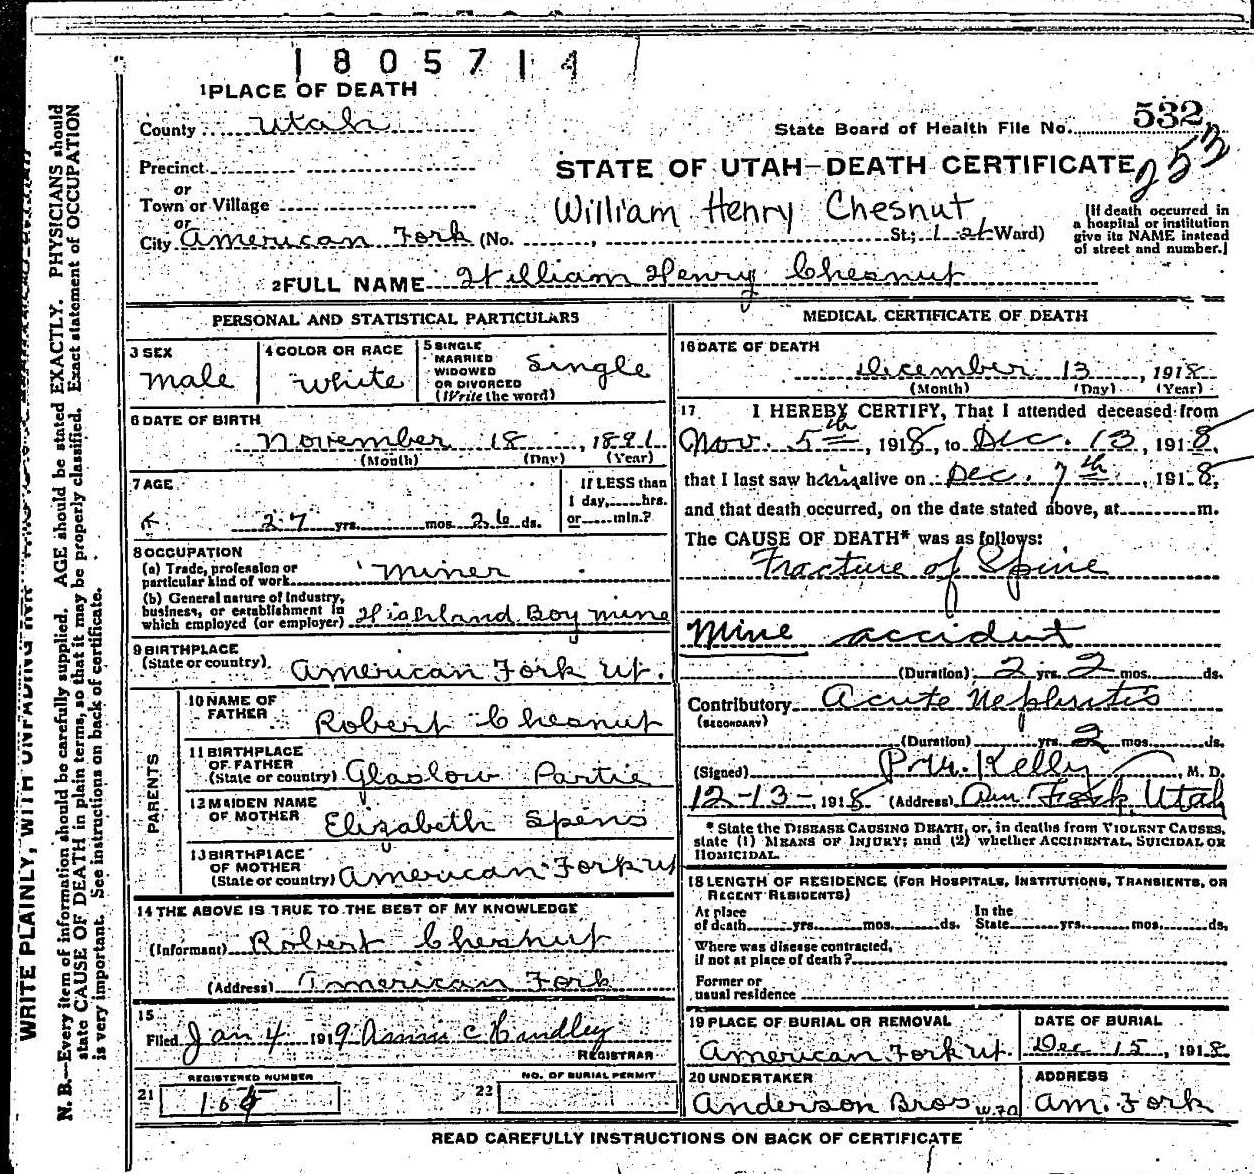 1805714
1 PLACE OF DEATH
County Utah
532
State Board of Health File No.
Precinct
STATE OF UTAH—DEATH CERTIFICATE
253
or
Town or Village
William Henry Chesnut
or
City American Fork (No. , St.; 1st Ward)
[If death occurred in
a hospital or institution
give its NAME instead
of street and number.]
2 FULL NAME William Henry Chesnut
PERSONAL AND STATISTICAL PARTICULARS
3 SEX
Male
4 COLOR OR RACE
White
5 SINGLE
MARRIED
WIDOWED
OR DIVORCED
(Write the word)
Single
6 DATE OF BIRTH
November 18, 1891
(Month) (Day) (Year)
7 AGE
27 yrs. mos. 26 ds.
If LESS than
1 day, hrs.
or min.?
8 OCCUPATION
(a) Trade, profession or
particular kind of work Miner
(b) General nature of Industry,
business, or establishment in
which employed (or employer) Highland Boy Mine
9 BIRTHPLACE
(State or country) American Fork Ut.
PARENTS
10 NAME OF
FATHER Robert Chesnut
11 BIRTHPLACE
OF FATHER
(State or country) Glaslow Partie
12 MAIDEN NAME
OF MOTHER Elizabeth Spens
13 BIRTHPLACE
OF MOTHER
(State or country) American Fork Ut
14 THE ABOVE IS TRUE TO THE BEST OF MY KNOWLEDGE
(Informant) Robert Chesnut
(Address) American Fork
15
Filed Jan 4 1919 Annie C Hindley
REGISTRAR
REGISTERED NUMBER
21
NO. OF BURIAL PERMIT
22
MEDICAL CERTIFICATE OF DEATH
16 DATE OF DEATH
December 13, 1918
(Month) (Day) (Year)
17 I HEREBY CERTIFY, That I attended deceased from
Nov. 5th, 1918, to Dec. 13, 1918,
that I last saw him alive on Dec. 7th, 1918,
and that death occurred, on the date stated above, at m.
The CAUSE OF DEATH* was as follows:
Fracture of Spine
Mine accident
(Duration) 2 yrs. 2 mos. ds.
Contributory Acute Nephritis
(SECONDARY)
(Duration) yrs. 2 mos. ds.
(Signed) Kelly, M. D.
12-13-1918 (Address) Am Fork, Utah
* State the DISEASE CAUSING DEATH, or, in deaths from VIOLENT CAUSES,
state (1) MEANS OF INJURY; and (2) whether ACCIDENTAL, SUICIDAL OR
HOMICIDAL.
18 LENGTH OF RESIDENCE (FOR HOSPITALS, INSTITUTIONS, TRANSIENTS, OR
RECENT RESIDENTS)
At place
of death yrs. mos. ds.
In the
State yrs. mos. ds.
Where was disease contracted,
if not at place of death?
Former or
usual residence
19 PLACE OF BURIAL OR REMOVAL
American Fork Ut.
DATE OF BURIAL
Dec 15, 1918
20 UNDERTAKER
Anderson Bros
ADDRESS
Am. Fork
READ CAREFULLY INSTRUCTIONS ON BACK OF CERTIFICATE
N. B.—Every item of information should be carefully supplied. AGE should be stated EXACTLY. PHYSICIANS should
state CAUSE OF DEATH in plain terms, so that it may be properly classified. Exact statement of OCCUPATION
is very important. See instructions on back of certificate.
WRITE PLAINLY, WITH UNFADING INK